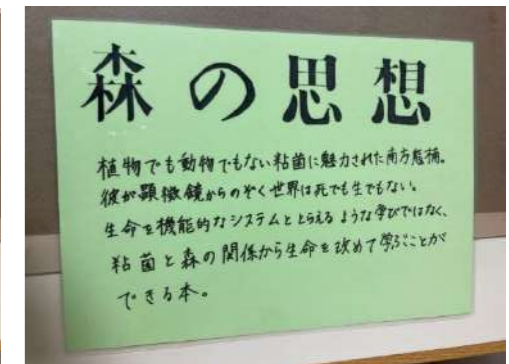 森の思想
植物でも動物でもない粘菌に魅力された南方熊楠。
彼が顕微鏡からのぞく世界は死でも生でもない。
生命を機能的なシステムととらえるような学びではなく、
粘菌と森の関係から生命を改めて学ぶことが
できる本。